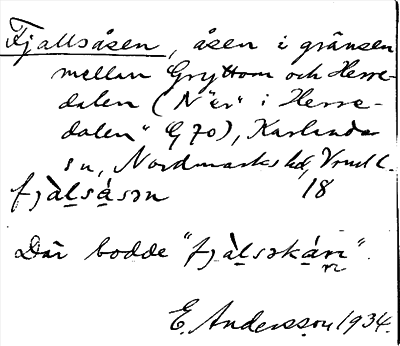 Fjallsåsen, åsen i gränsen
mellan Gryttom och Herre-
dalen (N "er" i Herre-
dalen" G 70), Karlanda
sn, Nordmarks hd, Vrml.
fjàlsásən 18
Där bodde "fjàlsəkári".
E. Andersson 1934.